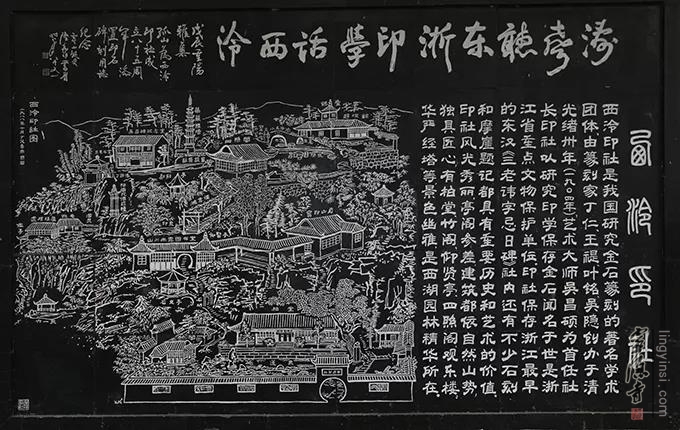 涛声聽东浙印學話西泠
戊辰重阳
雅集
孤山为西泠
印社成
立八十五周
置印石
碑刻用誌
纪念
西泠印社
西泠印社是我国研究金石篆刻的著名学术
团体由篆刻家丁仁王禔叶铭吴隐创办于清
光绪卅年(一九〇四年)艺术大师吴昌硕为首任社
长印社以研究印学保存金石闻名于世是浙
江省重点文物保护单位印社保存浙江最早
的东汉《三老讳字忌日碑》社内还有不少石刻
和摩崖题记都具有重要历史和艺术的价值
印社风光秀丽亭阁参差建筑都依自然山势
独具匠心有柏堂竹阁仰贤亭四照阁观乐楼
华严经塔等景色幽雅是西湖园林精华所在
西泠印社图
柏堂
lingyinsi.com